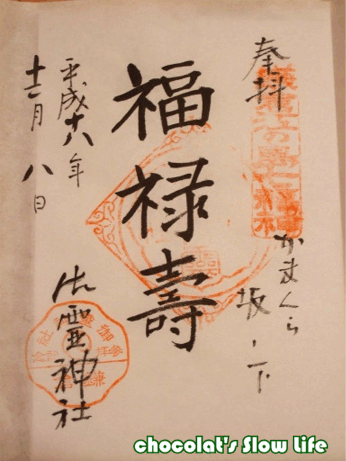 奉拝
かまくら
坂ノ下
福禄壽
平成十八年
十二月八日
御霊神社
chocolat's Slow Life